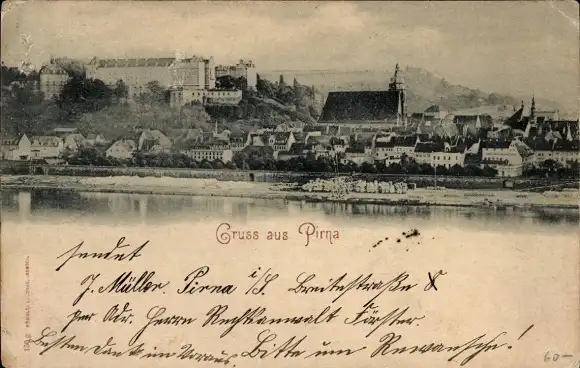 Gruss aus Pirna
sendet
J. Müller Pirna i/S. Breitestraße 8
per Adr. Herrn Rechtsanwalt Förster.
Besten Dank im Voraus. Bitte um Revansche!
60-